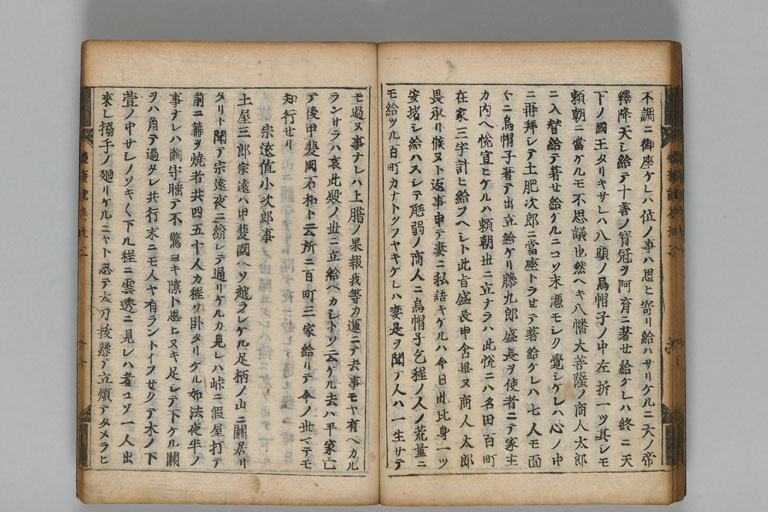 不調ニ御座ケレハ位ノ事ハ思ヒ寄リ給ハサリケルニ天ノ帝
釋降天シ給テ十善ノ寳冠ヲ阿育ニ著セ給ケレハ終ニ天
下ノ國王タリキサレハ八頭ノ烏帽子ノ中左折一ツ其レモ
頼朝ニ當ケルモ不思議也然ヘキ八幡大菩薩ノ商人太郎
ニ入替給テ著セ給ケルニコソ末憑モシク覺シケレハ心ノ中
ニ再拜シテ土肥次郎ニ當座トラせテ著給ケレハ七人モ面
々ニ烏帽子著テ出立給ケリ藤九郎盛長ヲ使者ニテ家主
カ内ヘ悦宣ヒケルハ頼朝世ニ立ナラハ此悦ニハ名田百町
在家三宇計ヒ給フヘシト此旨盛長申含畢ヌ商人太郎
畏承リ候ヌト返事申テ妻ニ私語キケルハ今日此比身一ツ
安堵シ給ハスシテ尫弱ノ商人ニ烏帽子乞程ノ人ノ荒量ニ
モ給ツル百町カナトツフヤキケレハ妻是ヲ聞テ人ハ一生サテ
モ過ヌ事ナレハ上臈ノ果報我等カ運ニテ去事モヤ有ヘカル
ランサラハ哀此殿ノ世ニ立給ヘカシトソ云ケル去ハ平家亡
テ後甲斐國石和ト云所ニ百町三家給リテ今ノ世マテモ
知行セリ
宗遠値小次郎事
土屋三郎宗遠ハ甲斐國ヘソ越ラレケル足柄ノ山ニ關居リ
タリト聞テ宗遠夜ニ紛レテ過リケルカ見レハ峠ニ假屋打テ
前ニ篝ヲ燒者共四五十人カ程ソ卧タリケル如法夜半ノ
事ナレハ關守睡テ不驚ヨキ隙ト思ヒヌキ足シテ下ケル關
ヲハ角テ過タレ共行末ニモ人ヤ有ラントイフせクテ木ノ下
萱ノ中サシノツキ〱下ル程ニ雲透ニ見レハ者コソ一人出
來レ搦手ノ廻リケルニヤト思テ太刀拔懸テ立煩テタメラヒ